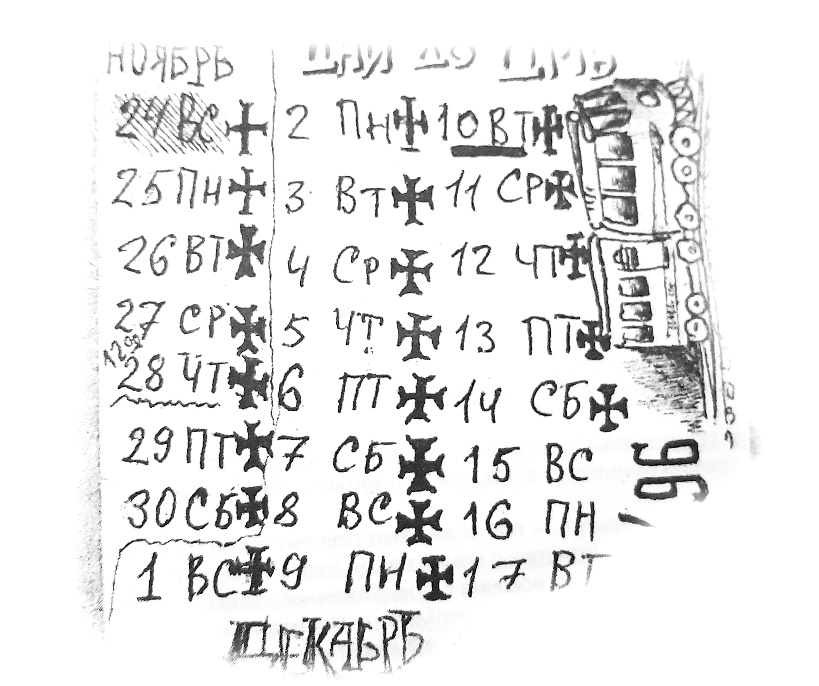 НОЯБРЬ ДНИ ДО ДМБ
24 ВС 2 ПН 10 ВТ
25 ПН 3 ВТ 11 СР
26 ВТ 4 СР 12 ЧТ
27 СР 5 ЧТ 13 ПТ
28 ЧТ 6 ПТ 14 СБ
29 ПТ 7 СБ 15 ВС
30 СБ 8 ВС 16 ПН
1 ВС 9 ПН 17 ВТ
ДЕКАБРЬ
96